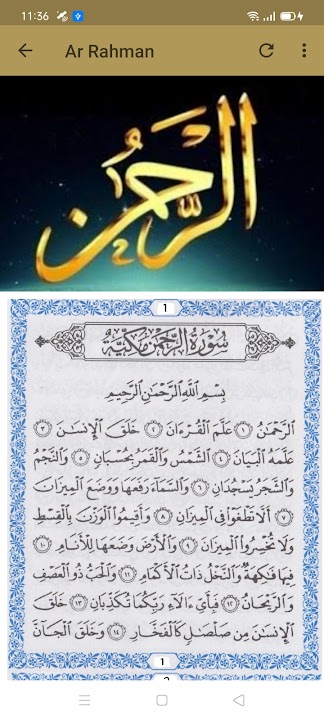 11:36
Ar Rahman
الرحمن
1
سُورَةُ الرَّحْمٰنِ مَكِّيَّةٌ
بِسْمِ اللَّهِ الرَّحْمَٰنِ الرَّحِيمِ
الرَّحْمَٰنُ ١ عَلَّمَ الْقُرْءَانَ ٢ خَلَقَ الْإِنسَٰنَ ٣
عَلَّمَهُ الْبَيَانَ ٤ الشَّمْسُ وَالْقَمَرُ بِحُسْبَانٍ ٥ وَالنَّجْمُ
وَالشَّجَرُ يَسْجُدَانِ ٦ وَالسَّمَاءَ رَفَعَهَا وَوَضَعَ الْمِيزَانَ
٧ أَلَّا تَطْغَوْا فِي الْمِيزَانِ ٨ وَأَقِيمُوا الْوَزْنَ بِالْقِسْطِ
وَلَا تُخْسِرُوا الْمِيزَانَ ٩ وَالْأَرْضَ وَضَعَهَا لِلْأَنَامِ ١٠
فِيهَا فَٰكِهَةٌ وَالنَّخْلُ ذَاتُ الْأَكْمَامِ ١١ وَالْحَبُّ ذُو الْعَصْفِ
وَالرَّيْحَانُ ١٢ فَبِأَيِّ ءَالَاءِ رَبِّكُمَا تُكَذِّبَانِ ١٣ خَلَقَ
الْإِنسَٰنَ مِن صَلْصَٰلٍ كَالْفَخَّارِ ١٤ وَخَلَقَ الْجَانَّ
1